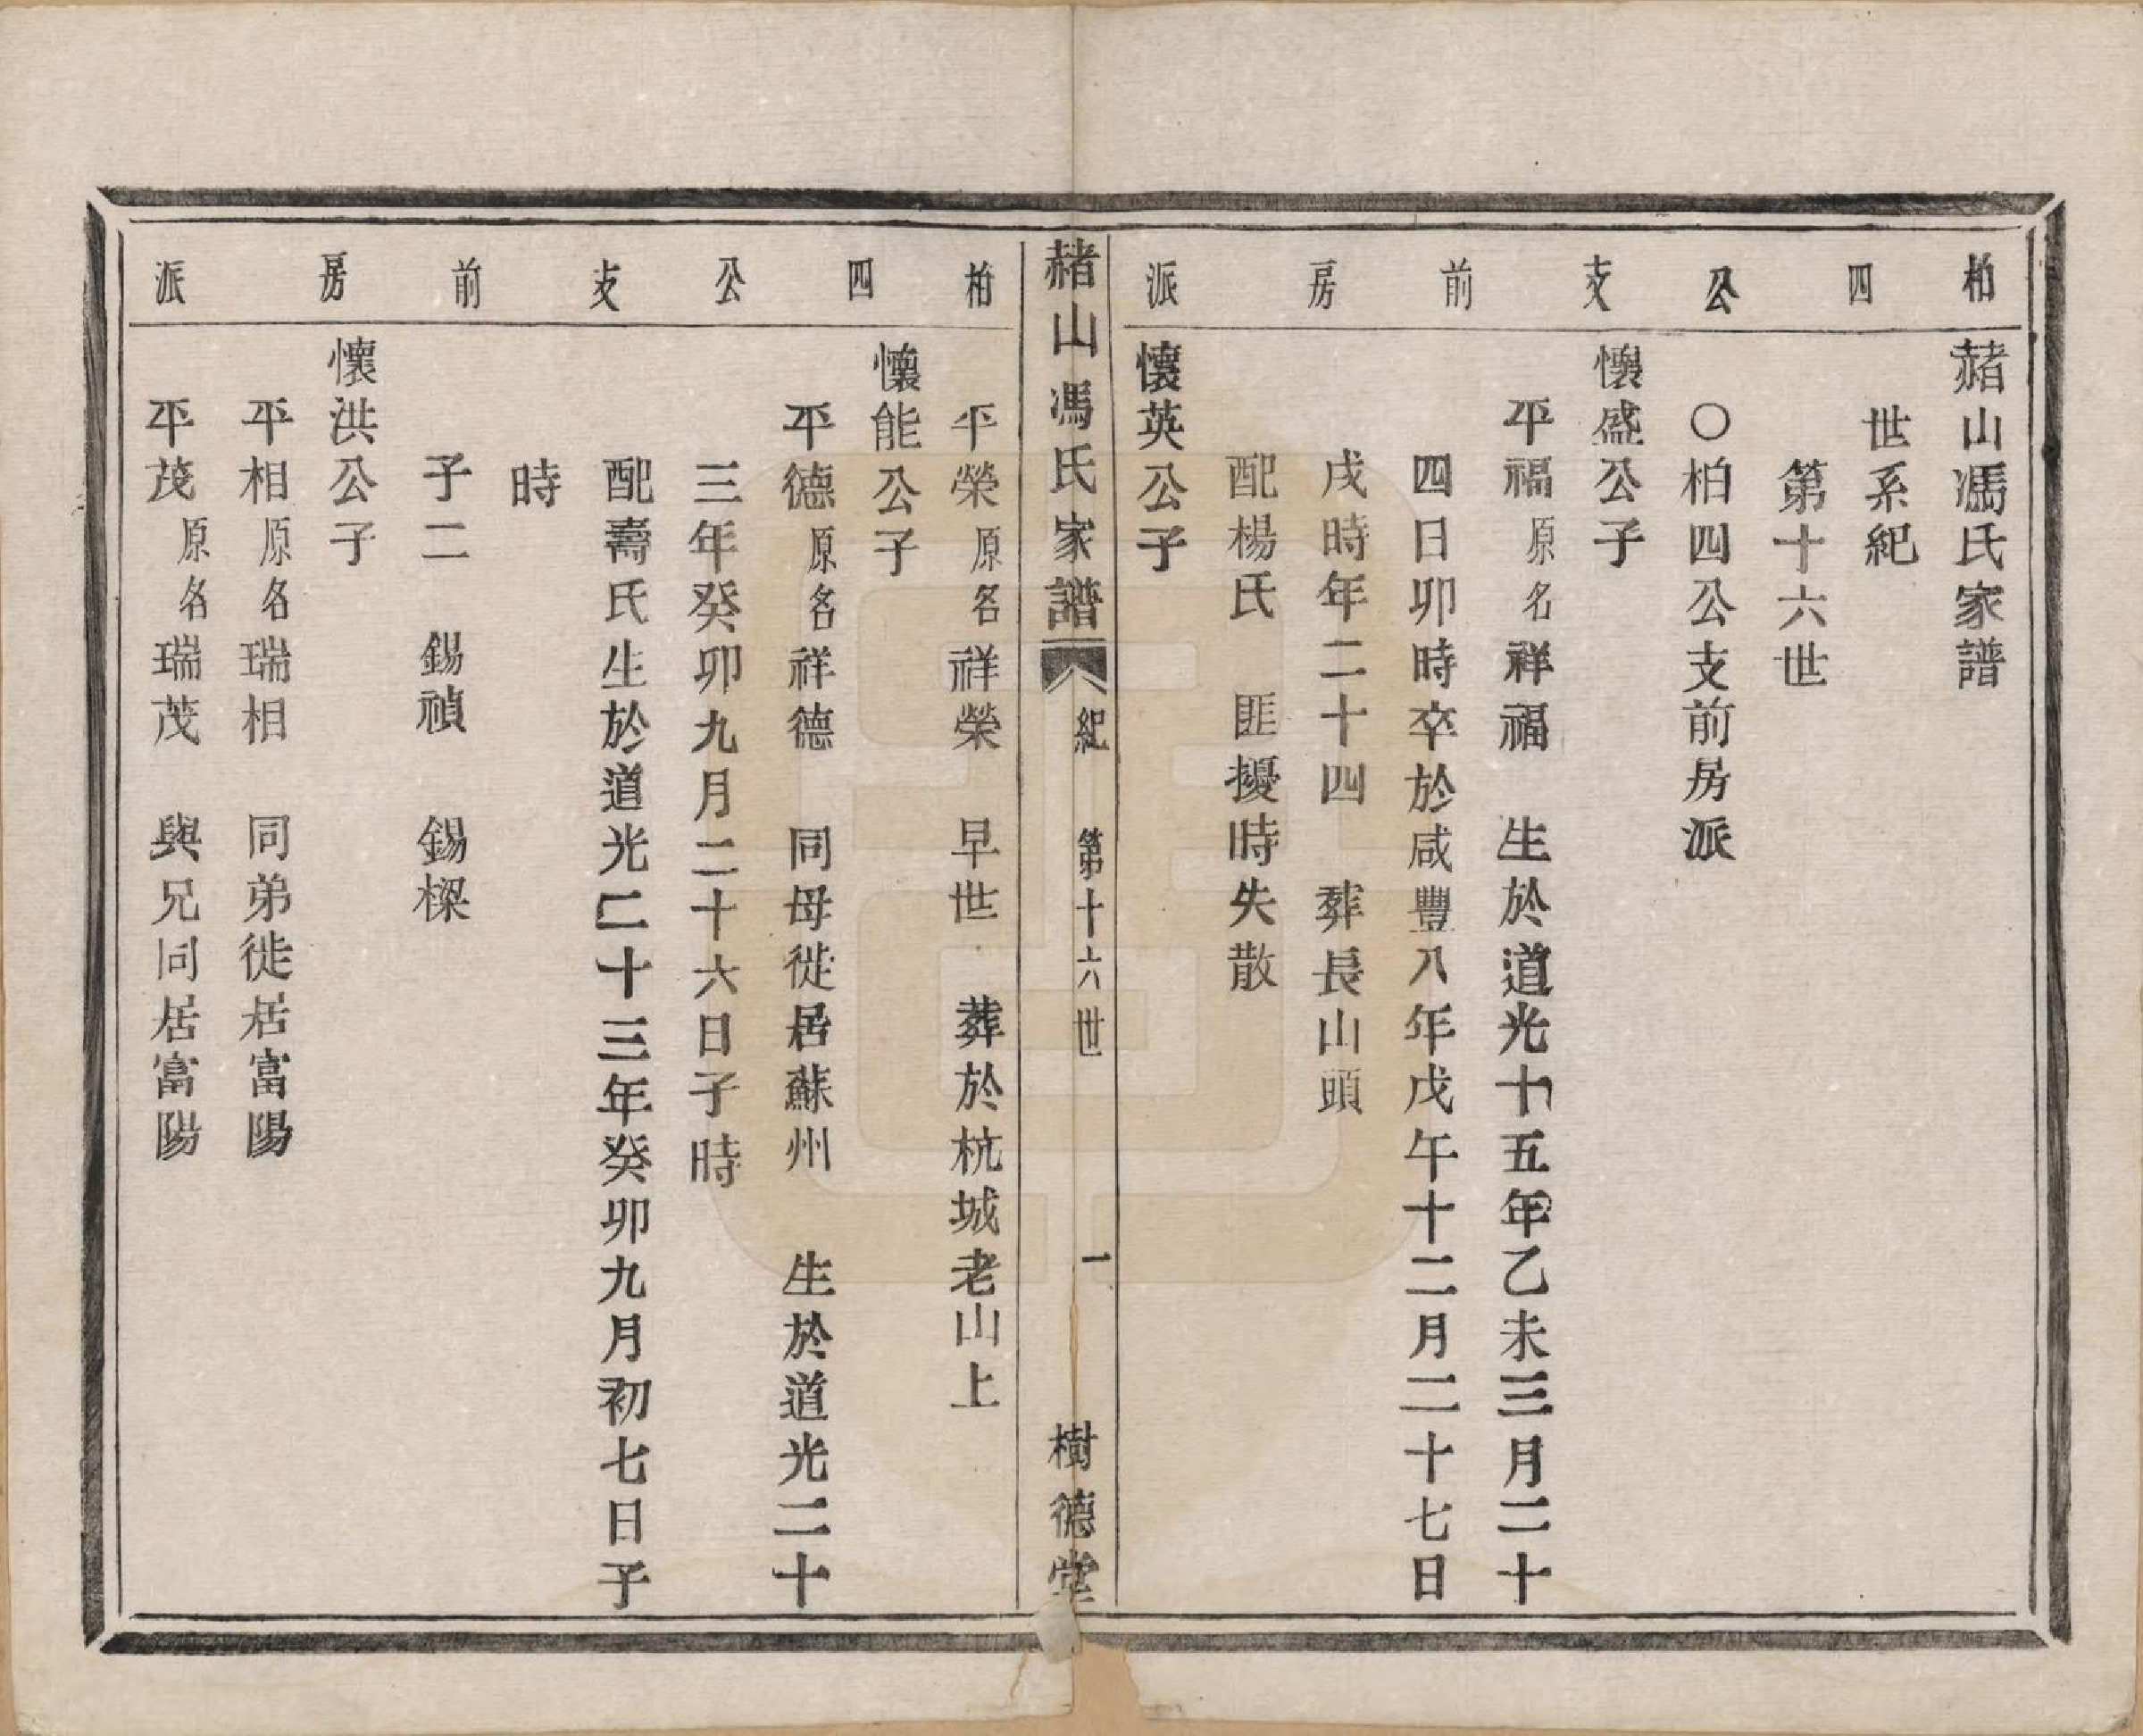 柏四公支前房派
赭山馮氏家譜
世系紀
第十六世
〇柏四公支前房派
懷盛公子
平福原名祥福 生於道光十五年乙未三月二十
四日卯時卒於咸豐八年戊午十二月二十七日
戌時年二十四 葬長山頭
配楊氏 匪擾時失散
懷英公子
赭山馮氏家譜 紀 第十六世 一 樹德堂
柏四公支前房派
平榮原名祥榮 早世 葬於杭城老山上
懷能公子
平德原名祥德 同母徙居蘇州 生於道光二十
三年癸卯九月二十六日子時
配壽氏生於道光二十三年癸卯九月初七日子
時
子二 錫禎 錫樑
懷洪公子
平相原名瑞相 同弟徙居富陽
平茂原名瑞茂 與兄同居富陽